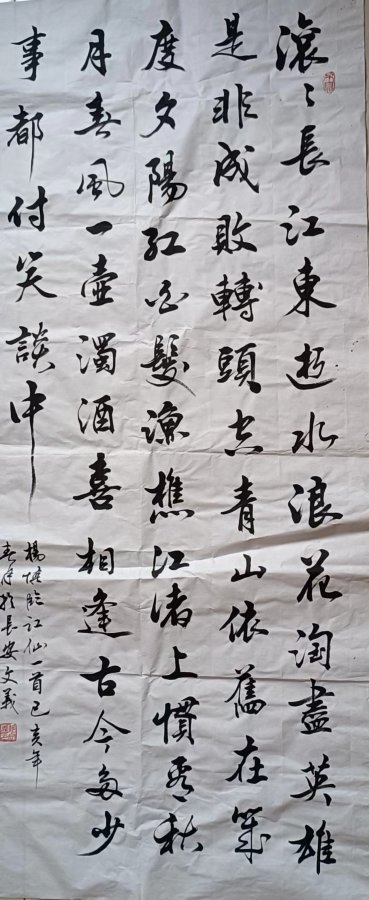 滾〻長江東逝水浪花淘盡英雄
是非成敗轉頭空青山依舊在幾
度夕陽紅白髮漁樵江渚上慣看秋
月春風一壺濁酒喜相逢古今多少
事都付笑談中
楊慎臨江仙一首己亥年
春於長安文義